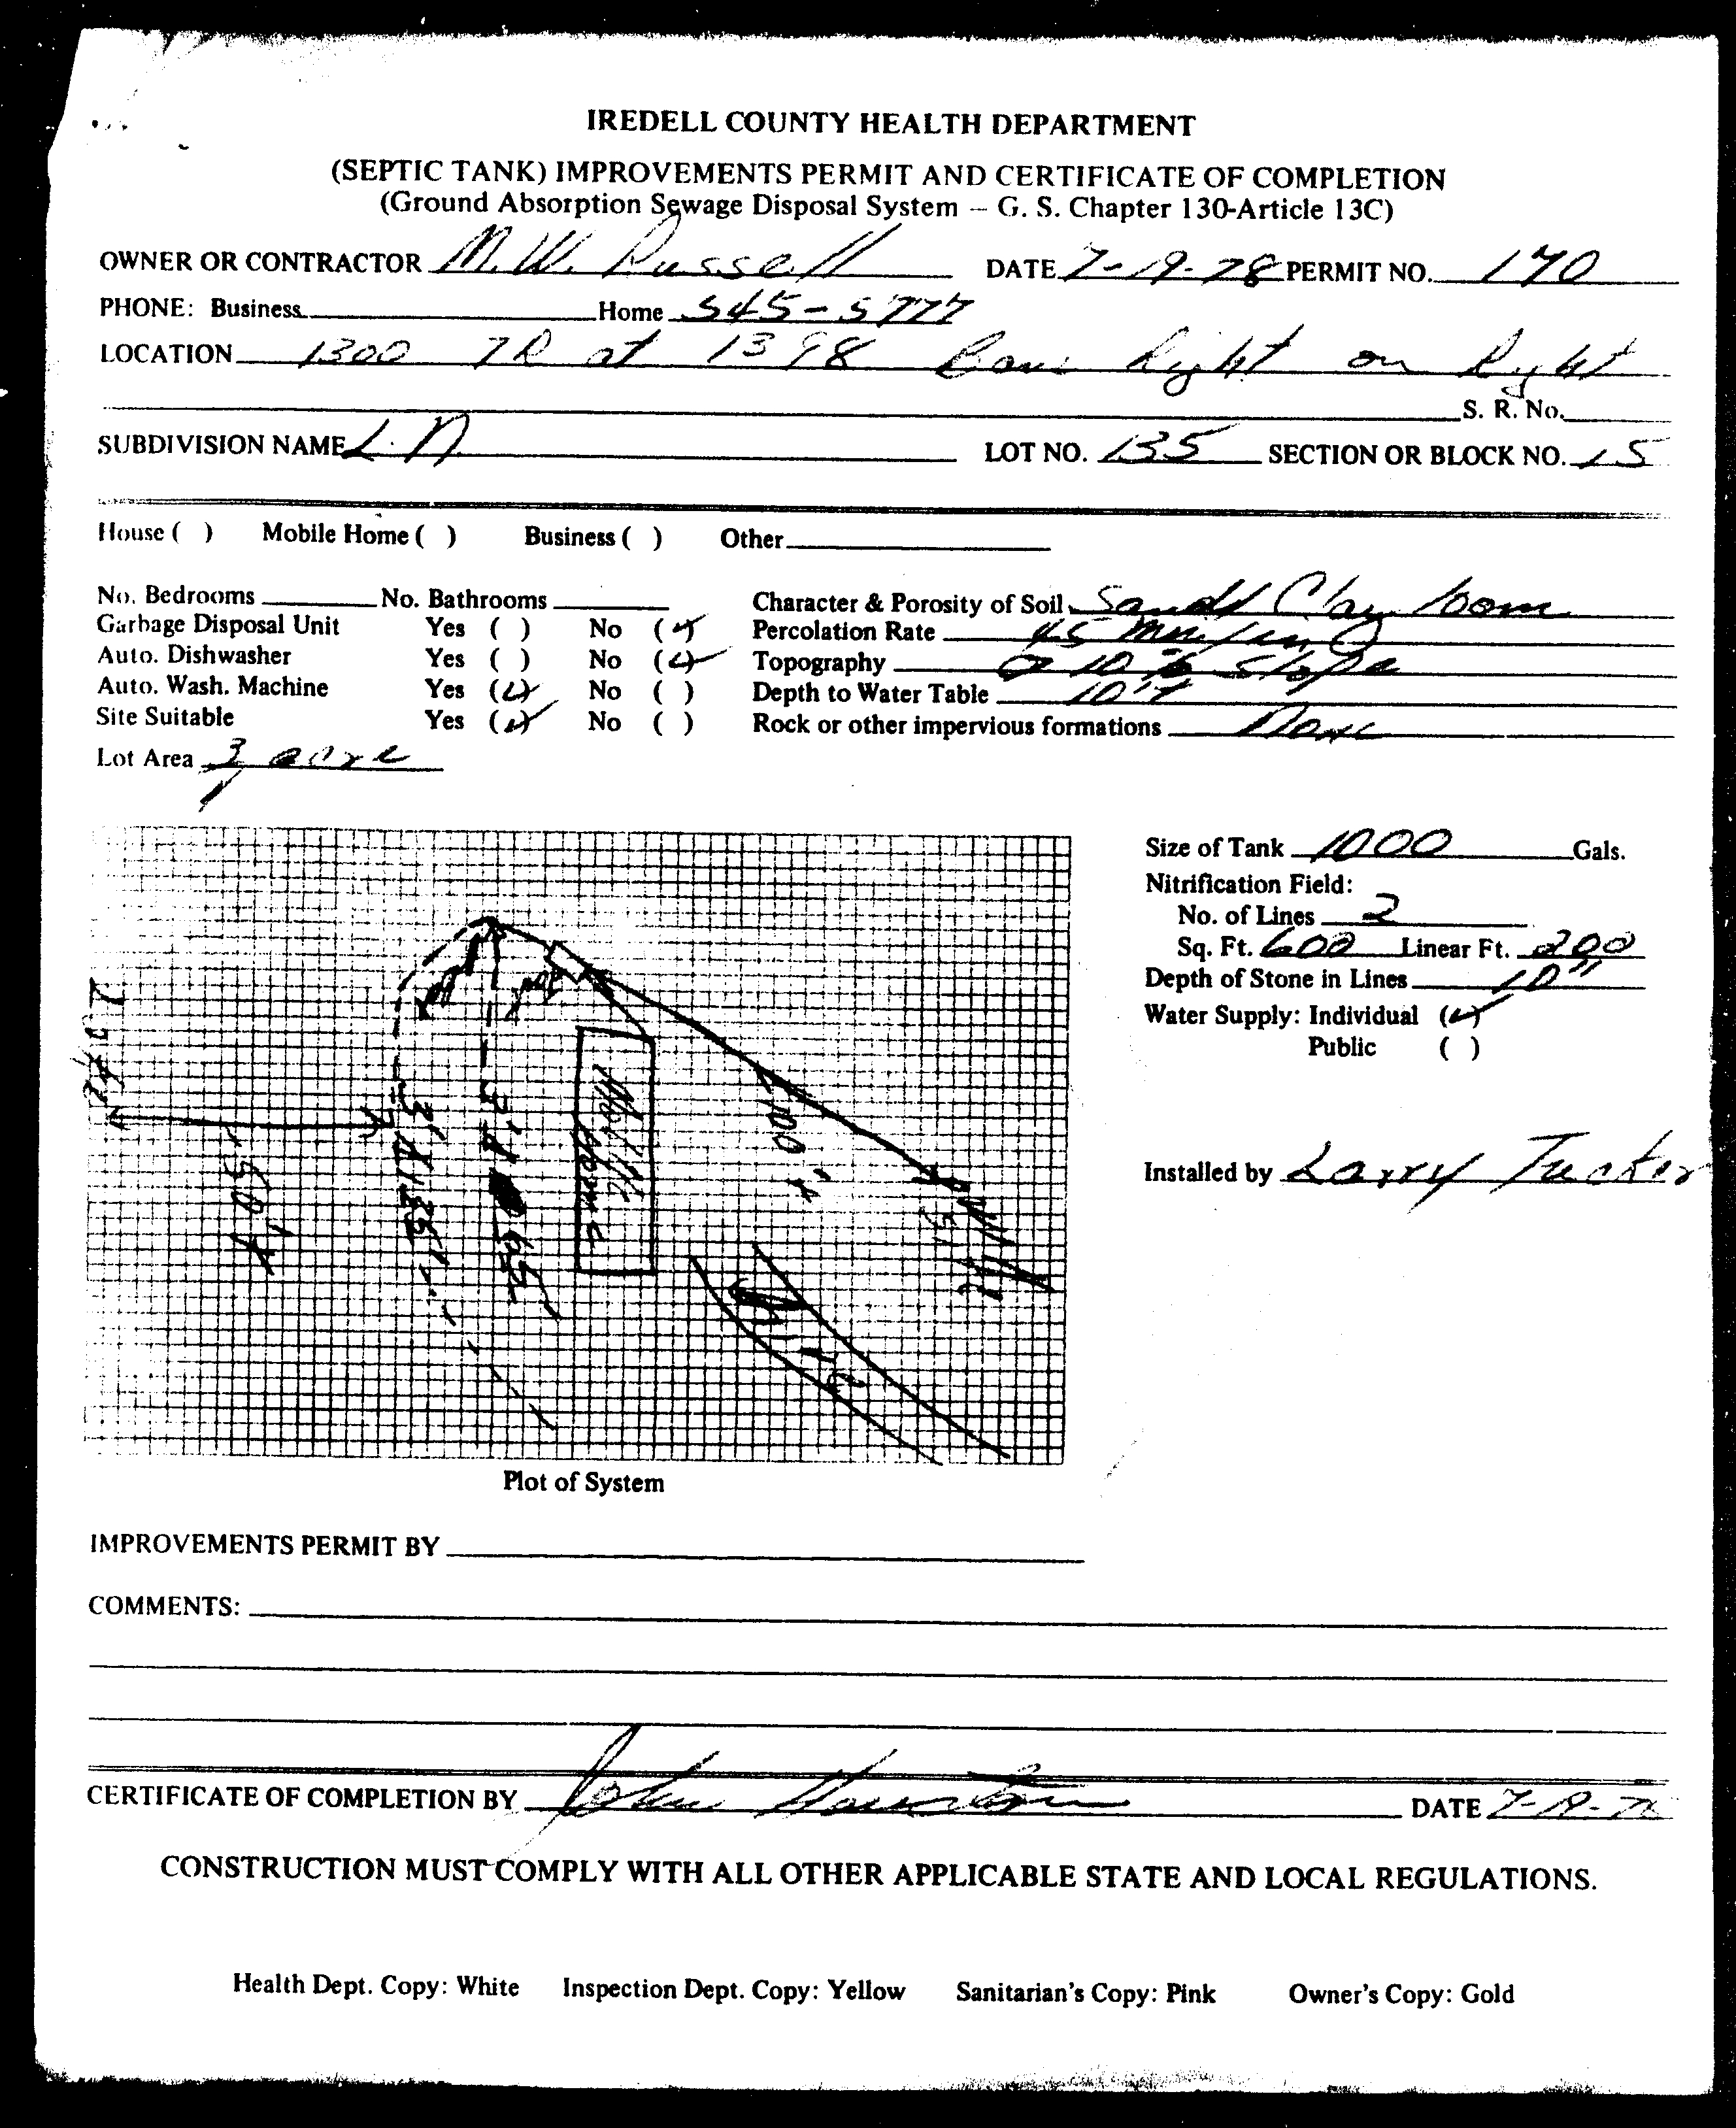 IREDELL COUNTY HEALTH DEPARTMENT
(SEPTIC TANK) IMPROVEMENTS PERMIT AND CERTIFICATE OF COMPLETION
(Ground Absorption Sewage Disposal System — G. S. Chapter 130-Article 13C)
OWNER OR CONTRACTOR M. W. Russell DATE 7-19-78 PERMIT NO. 170
PHONE: Business Home 545-5777
LOCATION 1300 TR at 1398 Right on Right
S. R. No.
SUBDIVISION NAME L. N. LOT NO. 135 SECTION OR BLOCK NO. 15
House ( ) Mobile Home ( ) Business ( ) Other
No. Bedrooms No. Bathrooms Character & Porosity of Soil Sandy Clay loam
Garbage Disposal Unit Yes ( ) No (✓) Percolation Rate 45 min/in
Auto. Dishwasher Yes ( ) No (✓) Topography 10% Slope
Auto. Wash. Machine Yes (✓) No ( ) Depth to Water Table 10'+
Site Suitable Yes (✓) No ( ) Rock or other impervious formations None
Lot Area acre
Size of Tank 1000 Gals.
Nitrification Field:
No. of Lines 2
Sq. Ft. 600 Linear Ft. 200
Depth of Stone in Lines 10"
Water Supply: Individual (✓)
Public ( )
Mobile Home
100'+
50'+
Installed by Larry Tucker
Plot of System
IMPROVEMENTS PERMIT BY
COMMENTS:
CERTIFICATE OF COMPLETION BY John DATE
CONSTRUCTION MUST COMPLY WITH ALL OTHER APPLICABLE STATE AND LOCAL REGULATIONS.
Health Dept. Copy: White Inspection Dept. Copy: Yellow Sanitarian's Copy: Pink Owner's Copy: Gold